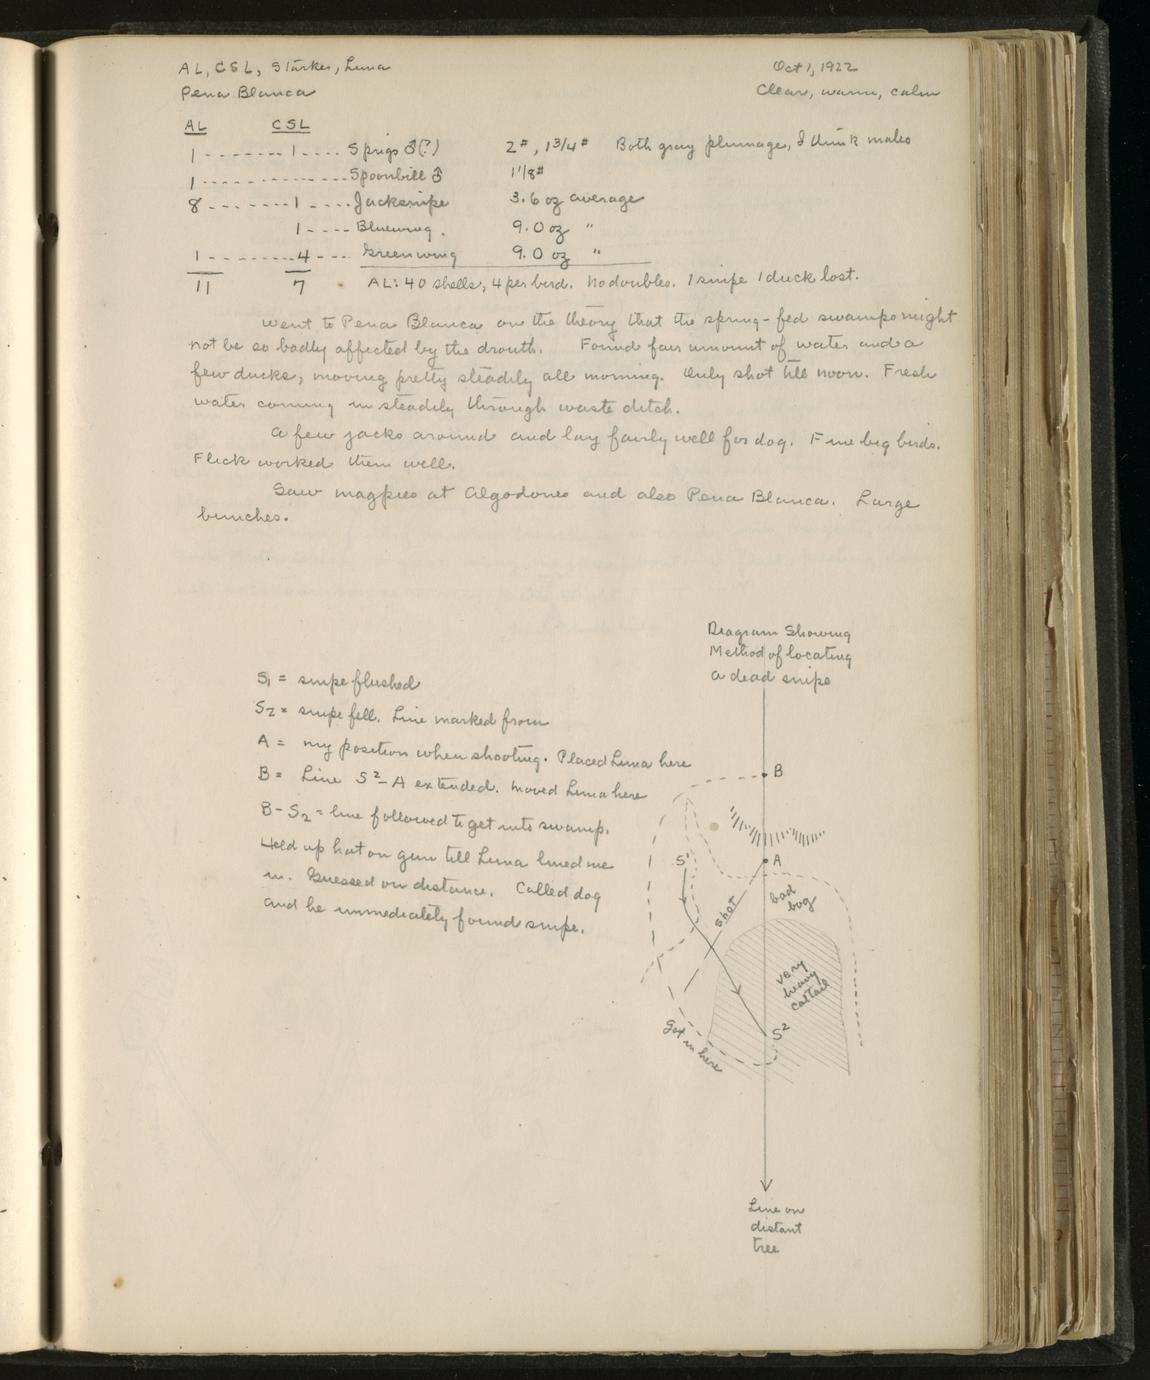 AL, CSL, Starker, Luna
Oct 1, 1922
Pena Blanca
Clear, warm, calm
AL CSL
1 - - - - - - - 1 - - - - Sprigs ♂(?) 2#, 1 3/4# Both gray plumage, I think males
1 - - - - - - - - - - - - - - Spoonbill ♂ 1 1/8#
8 - - - - - - - 1 - - - - Jacksnipe 3.6 oz average
1 - - - - Bluewing. 9.0 oz "
1 - - - - - - - - 4 - - - Greenwing 9.0 oz "
11 7 AL: 40 shells, 4 per bird. No doubles. 1 snipe 1 duck lost.
Went to Pena Blanca on the theory that the spring-fed swamps might
not be so badly affected by the drouth. Found fair amount of water and a
few ducks, moving pretty steadily all morning. Only shot till noon. Fresh
water coming in steadily through waste ditch.
A few jacks around and lay fairly well for dog. Fine big birds.
Flick worked them well.
Saw magpies at Algodones and also Pena Blanca. Large
bunches.
Diagram Showing
Method of locating
a dead snipe
S1 = snipe flushed
S2 = snipe fell. Line marked from
A = my position when shooting. Placed Luna here
B = Line S2-A extended. Moved Luna here
B-S2 = line followed to get into swamp.
Held up hat on gun till Luna lined me
in. Guessed on distance. Called dog
and he immediately found snipe.
B
S1
A
shot
bad
bog
very
heavy
cattail
S2
Got in here
Line on
distant
tree